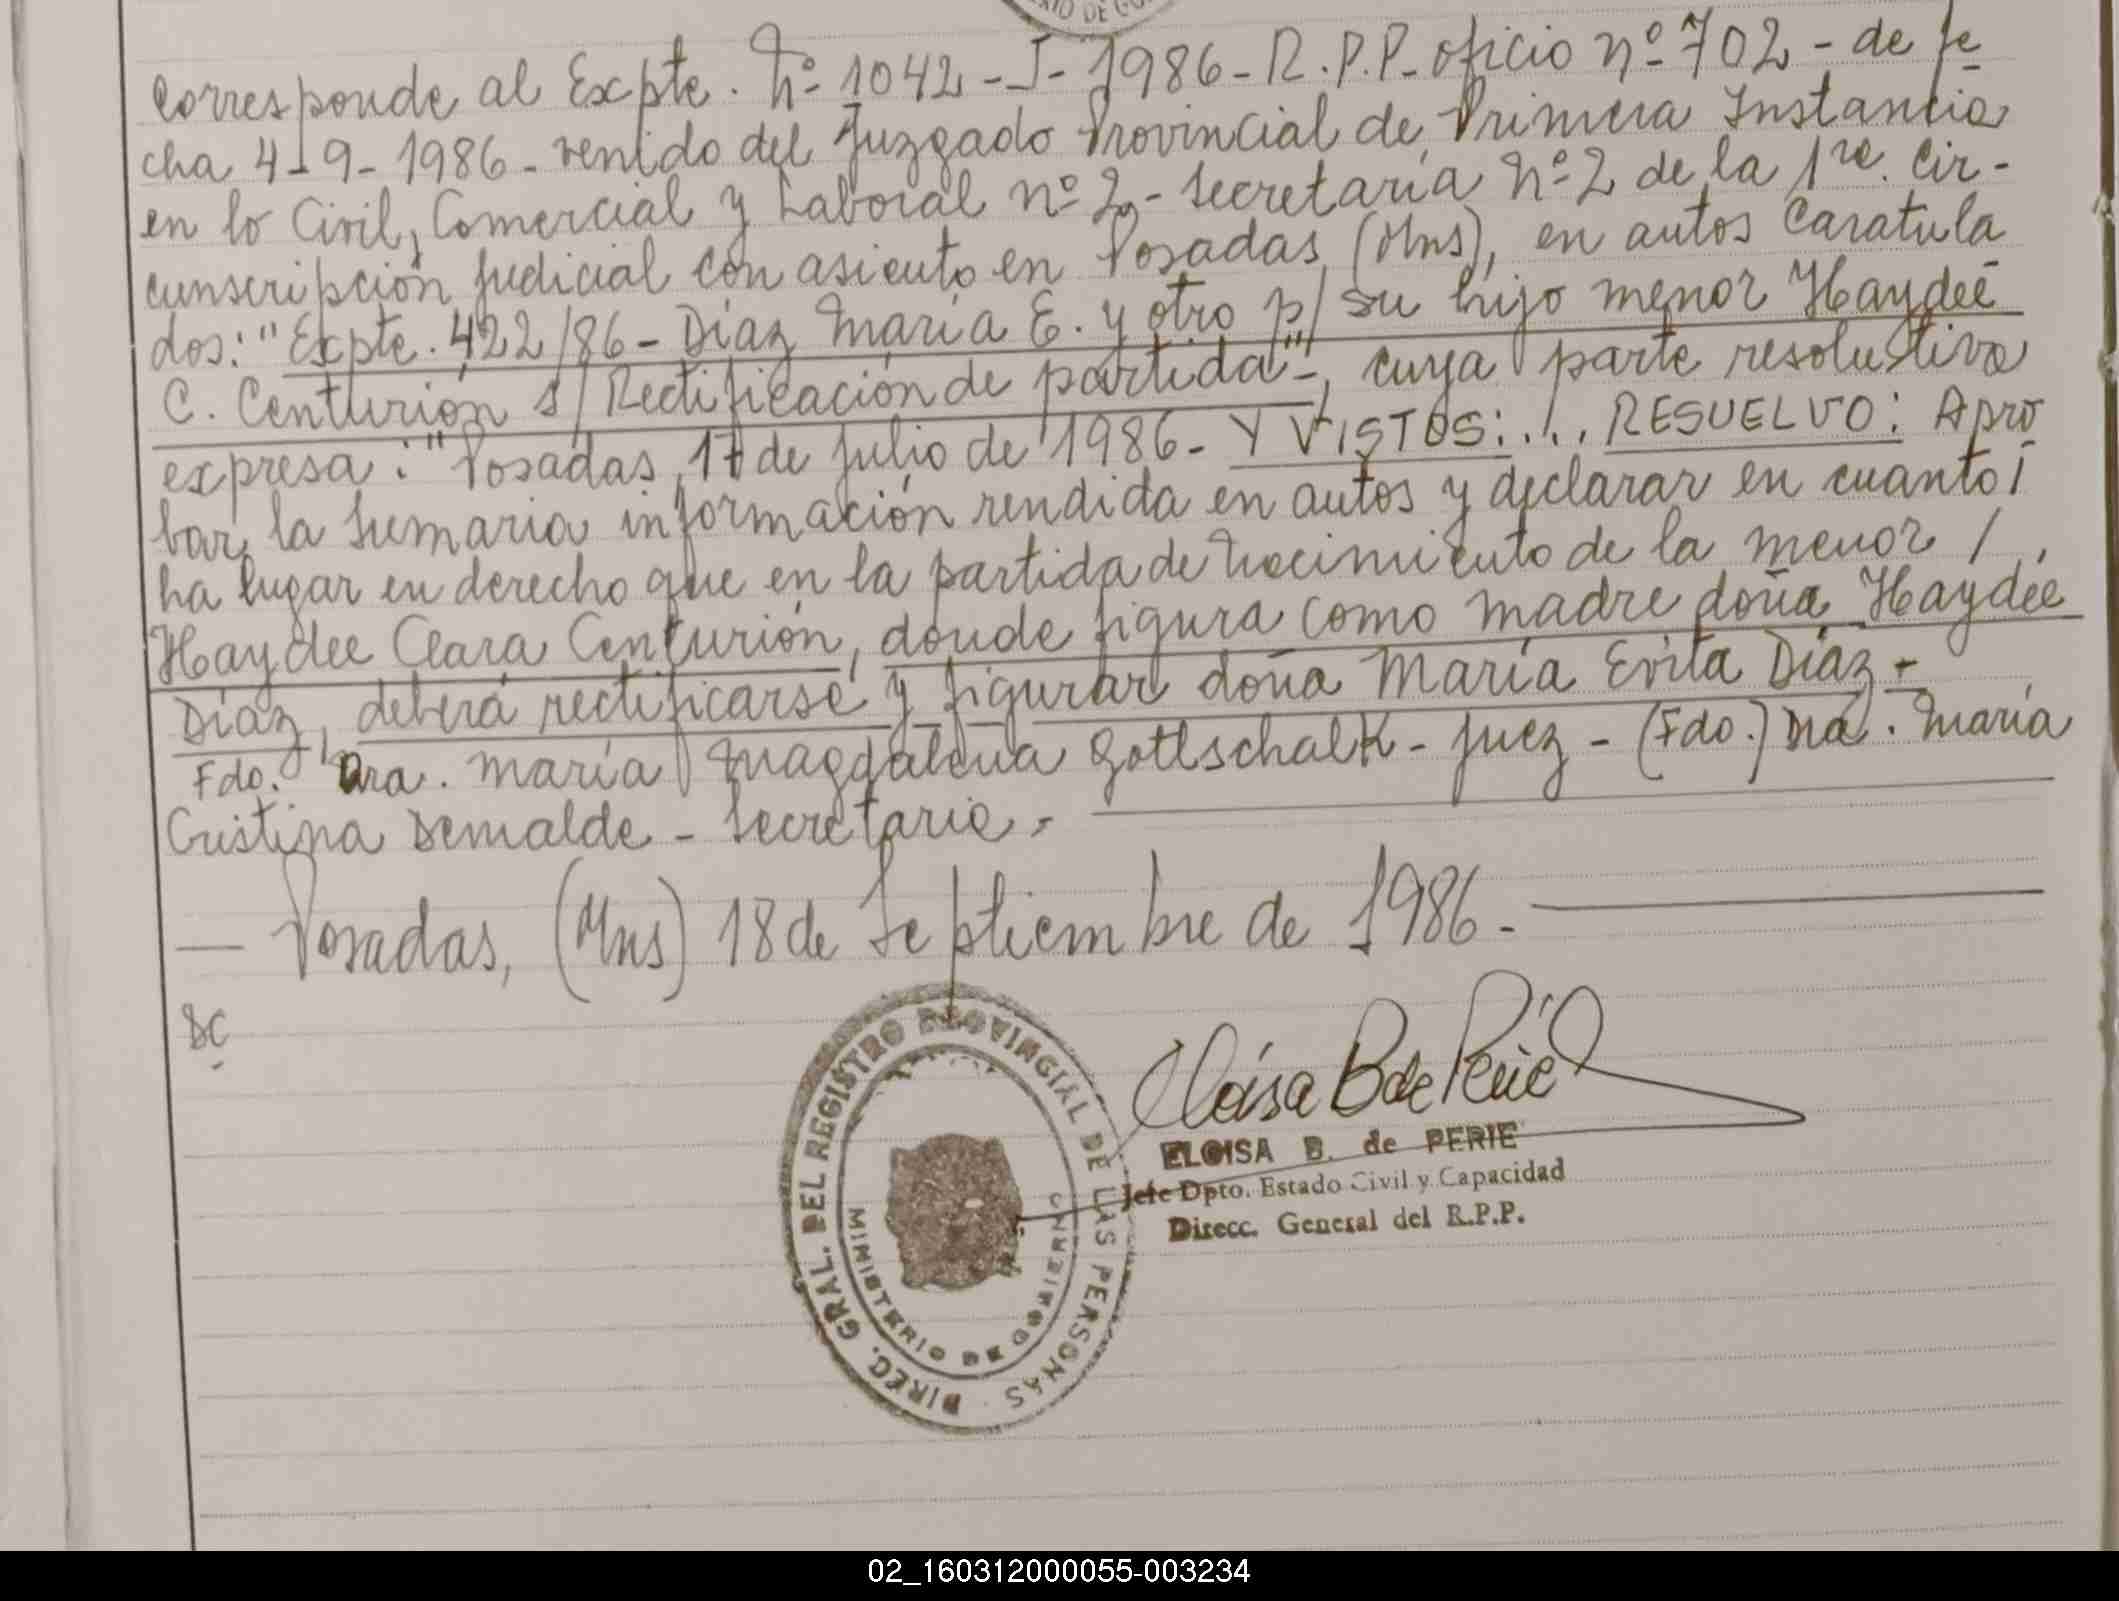 RIO DE GO
Corresponde al Expte. Nº 1042-J-1986-R.P.P. oficio nº 702 - de fe
cha 4-9-1986- venido del Juzgado Provincial de Primera Instancia
en lo Civil, Comercial y Laboral nº 2,- Secretaría Nº 2 de la 1ra. Cir-
cunscripción Judicial con asiento en Posadas (Mns), en autos caratula
dos: "Expte. 422/86- Díaz María E. y otro p/ su hijo menor Haydeé
C. Centurión s/ Rectificación de partida"-, cuya parte resolutiva
expresa: "Posadas, 17 de julio de 1986- Y VISTOS:... RESUELVO: Apro
bar la sumaria información rendida en autos y declarar en cuanto /
ha lugar en derecho que en la partida de nacimiento de la menor /
Haydee Clara Centurión, donde figura como madre doña Haydée
Díaz, deberá rectificarse y figurar doña María Evita Díaz.-
Fdo. Dra. María Magdalena Gottschalk - Juez - (Fdo.) Dra. María
Cristina Demalde - Secretaria.-
— Posadas, (Mns) 18 de Septiembre de 1986.-
SC
DIREC. GRAL. DEL REGISTRO PROVINCIAL DE LAS PERSONAS
MINISTERIO DE GOBIERNO
Eloísa B de Perié
ELOISA B. de PERIE
Jefe Dpto. Estado Civil y Capacidad
Direcc. General del R.P.P.
02_160312000055-003234